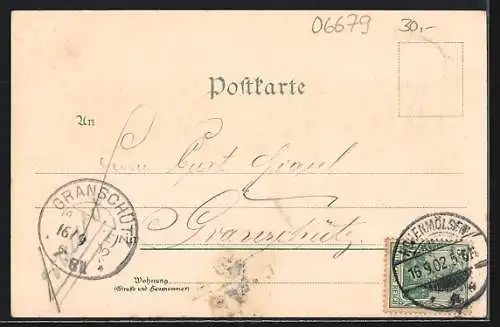 06679
30,-
Postkarte
An
Herrn Curt
Granschütz
in
Wohnung
(Straße und Hausnummer)
GRANSCHÜTZ
16/9
HOHENMÖLSEN
16.9.02.